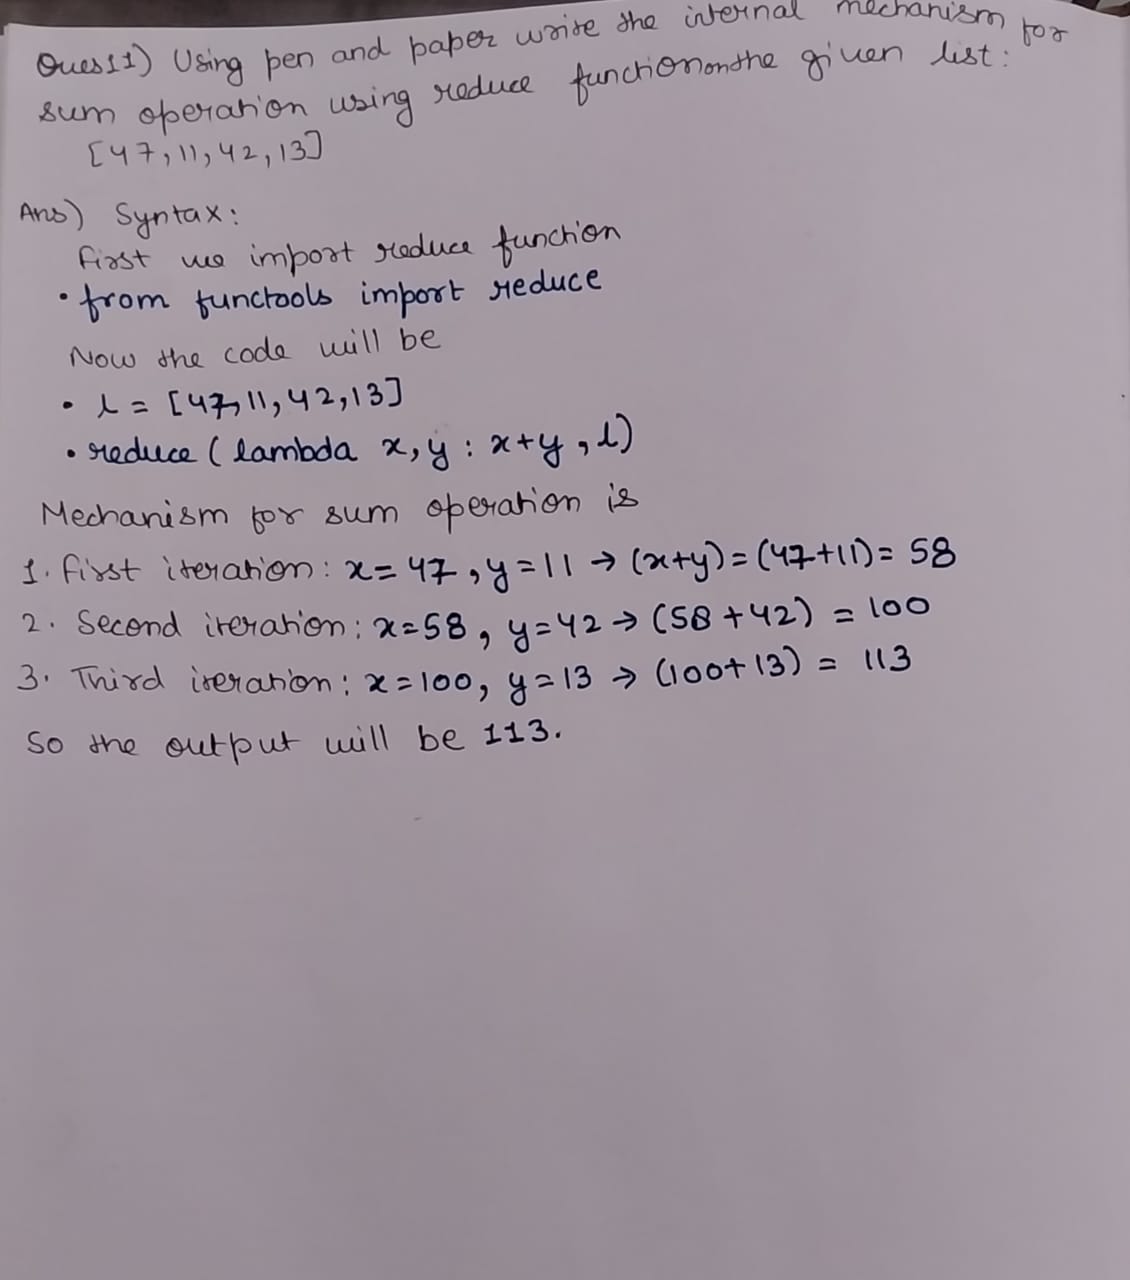 Ques 11) Using pen and paper write the internal mechanism for
sum operation using reduce function on the given list:
[47, 11, 42, 13]
Ans) Syntax:
First we import reduce function
• from functools import reduce
Now the code will be
• l = [47, 11, 42, 13]
• reduce ( lambda x, y : x+y , l)
Mechanism for sum operation is
1. First iteration: x= 47, y=11 → (x+y)= (47+11)= 58
2. Second iteration: x=58, y=42 → (58 + 42) = 100
3. Third iteration: x=100, y=13 → (100+ 13) = 113
So the output will be 113.